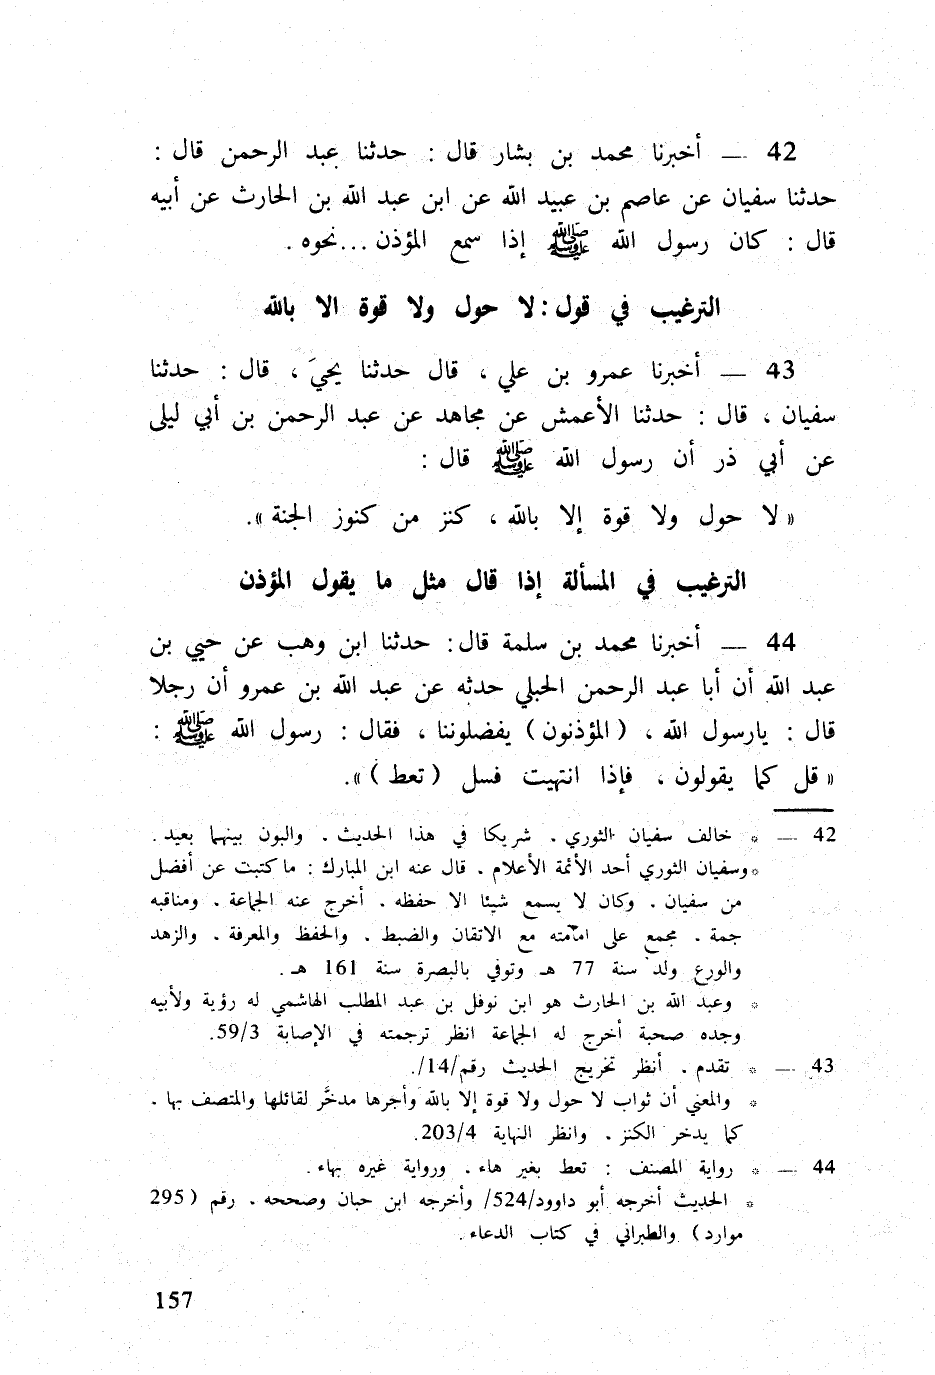 42 — أخبرنا محمد بن بشار قال : حدثنا عبد الرحمن قال :
حدثنا سفيان عن عاصم بن عبيد الله عن ابن عبد الله بن الحارث عن أبيه
قال : كان رسول الله ﷺ إذا سمع المؤذن ...نحوه .
الترغيب في قول : لا حول ولا قوة الا بالله
43 — أخبرنا عمرو بن علي ، قال حدثنا يحيَ ، قال : حدثنا
سفيان ، قال : حدثنا الأعمش عن مجاهد عن عبد الرحمن بن أبي ليلى
عن أبي ذر أن رسول الله ﷺ قال :
« لا حول ولا قوة إلا بالله ، كنز من كنوز الجنة ».
الترغيب في المسألة إذا قال مثل ما يقول المؤذن
44 — أخبرنا محمد بن سلمة قال : حدثنا ابن وهب عن حيي بن
عبد الله أن أبا عبد الرحمن الحبلي حدثه عن عبد الله بن عمرو أن رجلا
قال : يارسول الله ، ( المؤذنون ) يفضلوننا ، فقال : رسول الله ﷺ :
« قل كما يقولون ، فإذا انتهيت فسل ( تعط ) ».
42 — * خالف سفيان الثوري . شريكا في هذا الحديث . والبون بينهما بعيد .
* وسفيان الثوري أحد الأئمة الأعلام . قال عنه ابن المبارك : ما كتبت عن أفضل
من سفيان . وكان لا يسمع شيئا الا حفظه . أخرج عنه الجماعة . ومناقبه
جمة . مجمع على امامته مع الاتقان والضبط . والحفظ والمعرفة . والزهد
والورع ولد سنة 77 هـ وتوفي بالبصرة سنة 161 هـ .
* وعبد الله بن الحارث هو ابن نوفل بن عبد المطلب الهاشمي له رؤية ولأبيه
وجده صحبة أخرج له الجماعة انظر ترجمته في الإصابة 59/3.
43 — * تقدم . أنظر تخريج الحديث رقم/14/.
* والمعني أن ثواب لا حول ولا قوة إلا بالله وأجرها مدخَّر لقائلها والمتصف بها .
كما يدخر الكنز . وانظر النهاية 203/4.
44 — * رواية المصنف : تعط بغير هاء . ورواية غيره بهاء .
* الحديث أخرجه أبو داوود/524/ وأخرجه ابن حبان وصححه . رقم ( 295
موارد ) والطبراني في كتاب الدعاء .
157